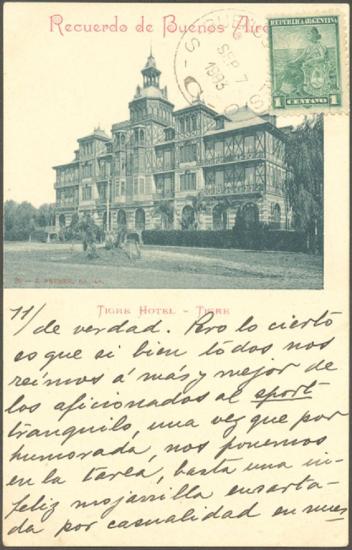 Recuerdo de Buenos Aire
BUENOS AIRES
SEP 7
REPUBLICA ARGENTINA
1 CENTAVO 1
TIGRE HOTEL - TIGRE
11/
de verdad. Pero lo cierto
es que si bien todos nos
reimos á más y mejor de
los aficionados al sport
tranquilo, una vez que por
humorada, nos ponemos
en la tarea, basta una in-
feliz mojarrilla ensarta-
da por casualidad en nues